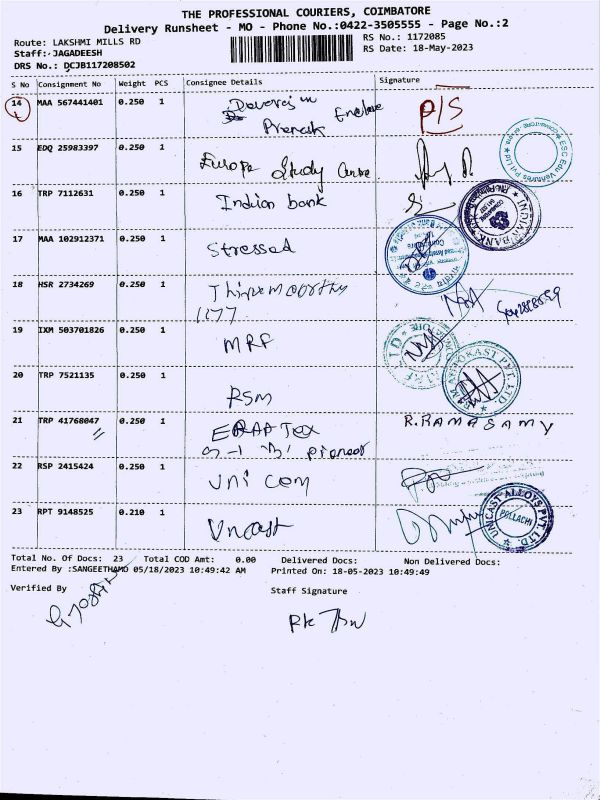 THE PROFESSIONAL COURIERS, COIMBATORE
Delivery Runsheet - MO - Phone No.:0422-3505555 - Page No.:2
Route: LAKSHMI MILLS RD
RS No.: 1172085
Staff:-JAGADEESH
RS Date: 18-May-2023
DRS No.: DCJB117208502
S No Consignment No Weight PCS Consignee Details Signature
14 MAA 567441401 0.250 1 Enclave P/S
15 EDQ 25983397 0.250 1 Europe Study Centre
16 TRP 7112631 0.250 1 Indian bank
INDIAN BANK
17 MAA 102912371 0.250 1 Stressed
18 HSR 2734269 0.250 1 Thirumoorthy
1177
19 IXM 503701826 0.250 1 MRF
20 TRP 7521135 0.250 1 RSM
21 TRP 41768047 0.250 1 R.RAMASAMY
pioneer
22 RSP 2415424 0.250 1 Uni com
23 RPT 9148525 0.210 1 Uncast
UNCAST ALLOYS PVT. LTD.
POLLACHI
Total No. Of Docs: 23 Total COD Amt: 0.00 Delivered Docs: Non Delivered Docs:
Entered By :SANGEETHAMO 05/18/2023 10:49:42 AM Printed On: 18-05-2023 10:49:49
Verified By Staff Signature